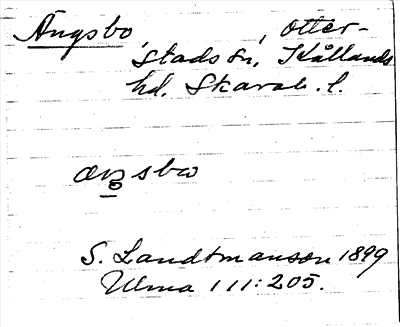 Ängsbo, , Otter-
stads sn, Kållands
hd. Skarab. l.
æŋsbω
S. Landtmanson 1899
Ulma 111:205.